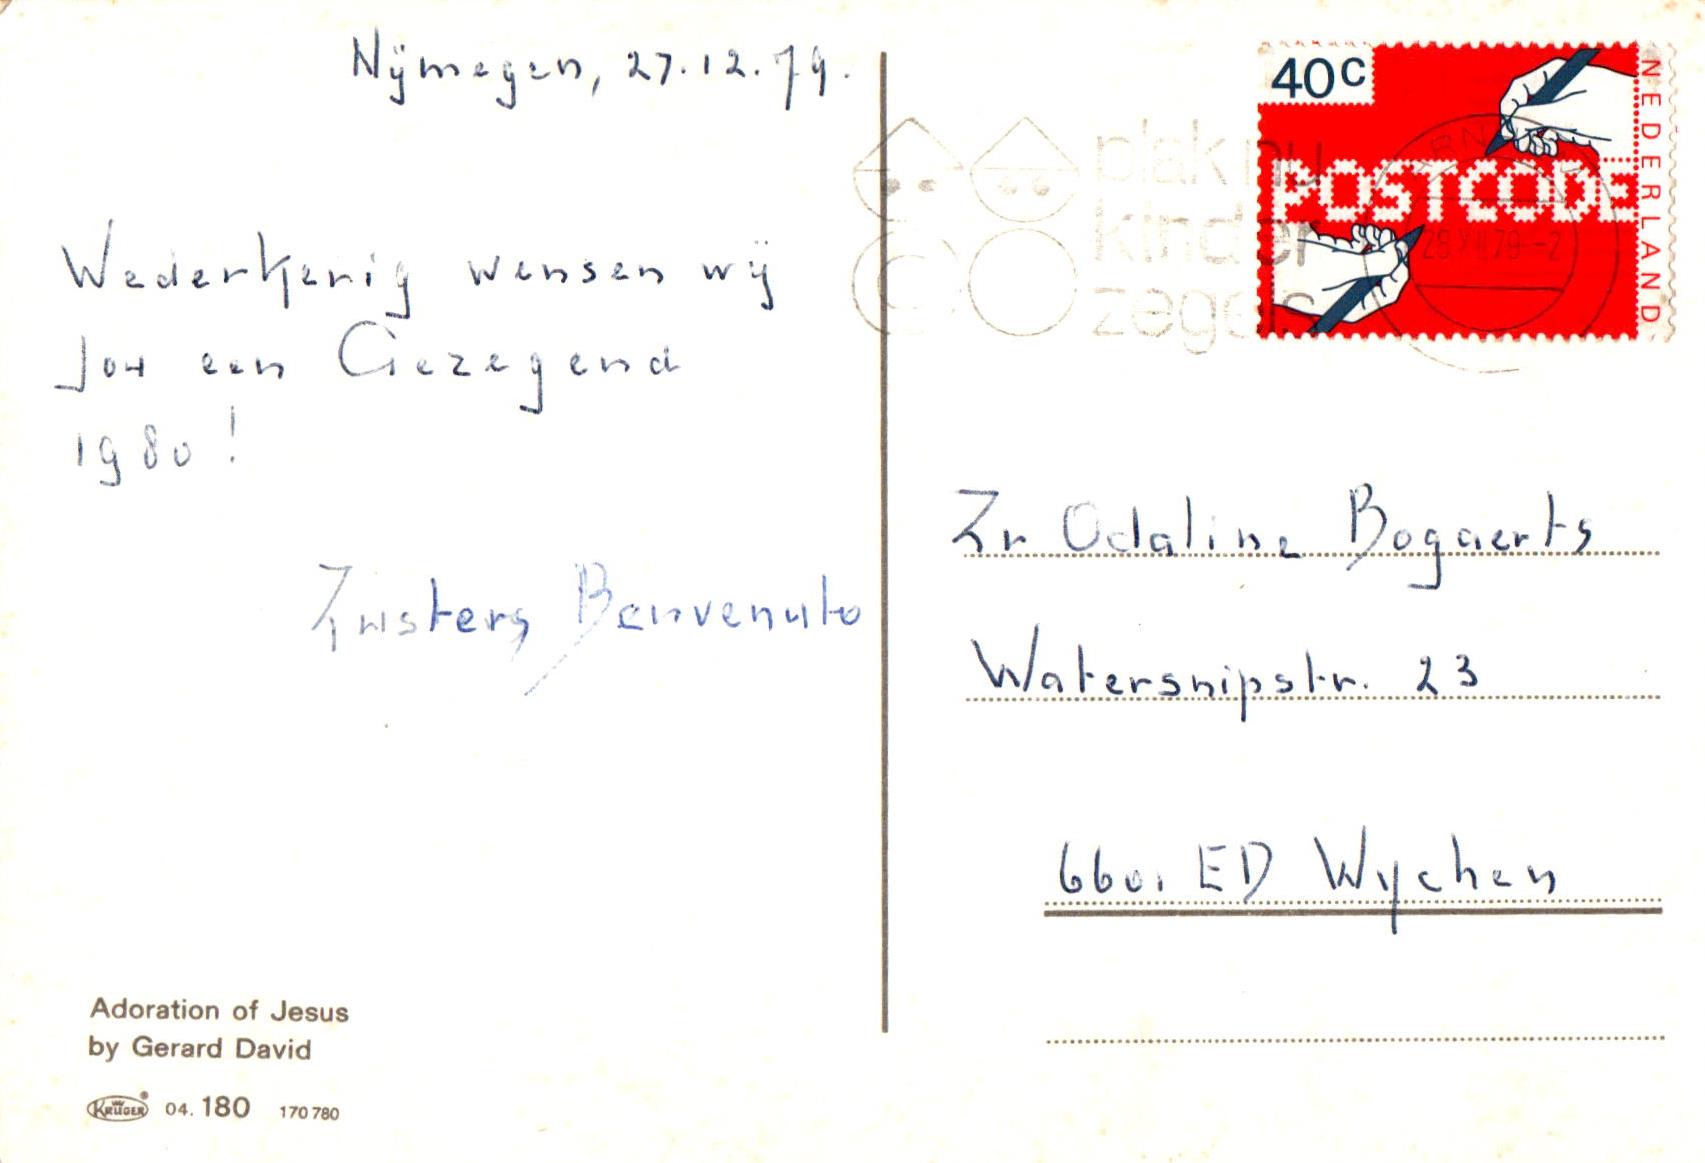 Nijmegen, 27.12.79.
Wederkerig wensen wij
Jou een Gezegend
1980!
Zusters Benvenuto
Adoration of Jesus
by Gerard David
KRÜGER 04. 180 170 780
40c
NEDERLAND
POSTCODE
plak nu
kinder
zegels
28.XII.79-2
Zr Odaline Bogaerts
Watersnipstr. 23
6601 ED Wychen